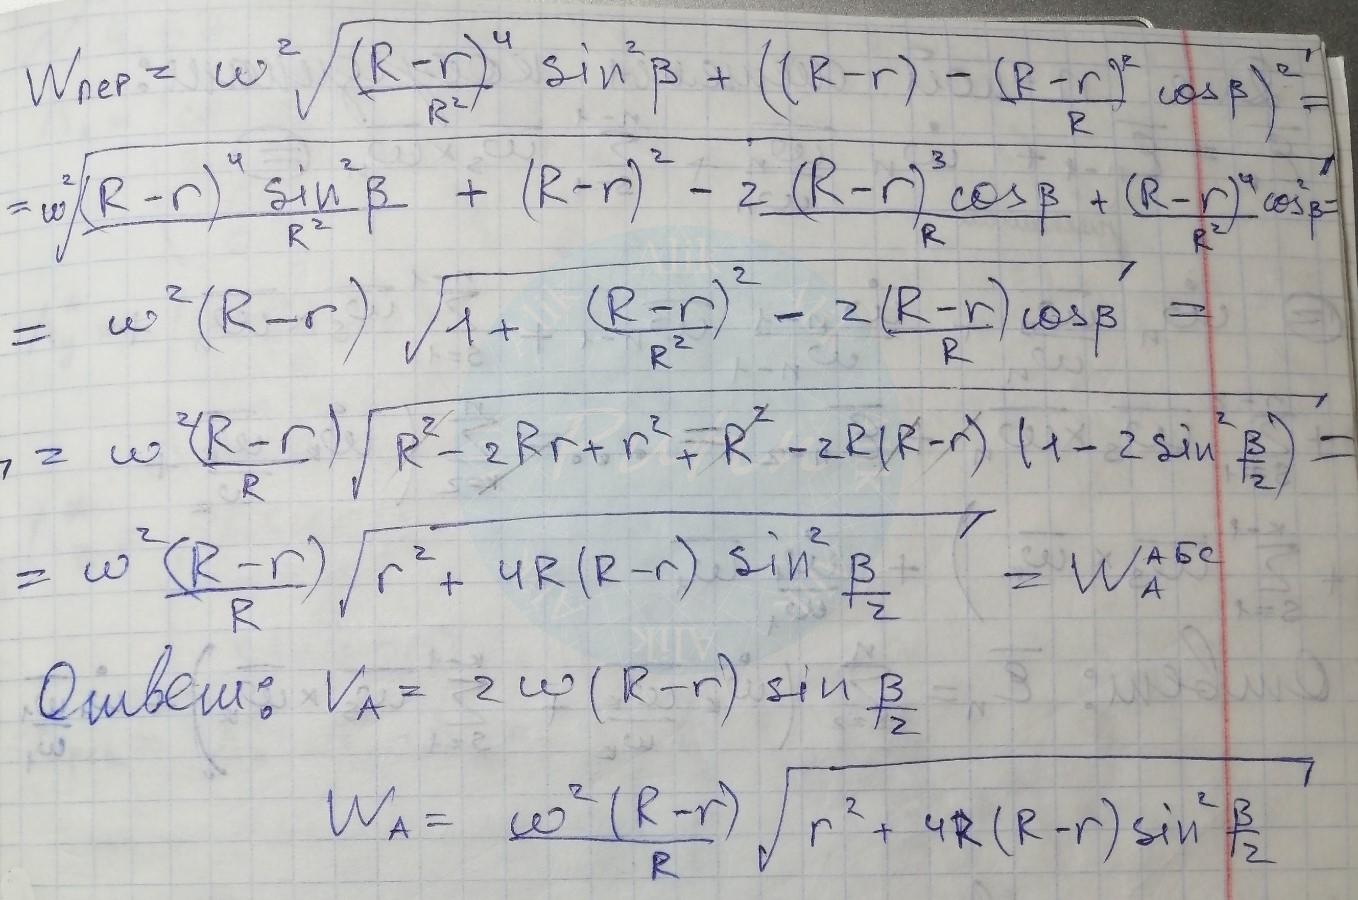 Wпер = ω² √((R-r)⁴/R² sin²β + ((R-r) - (R-r)²/R cosβ)²) =
= ω² √((R-r)⁴ sin²β/R² + (R-r)² - 2 (R-r)³ cosβ/R + (R-r)⁴/R² cos²β) =
= ω² (R-r) √(1 + (R-r)²/R² - 2 (R-r)/R cosβ) =
= ω² (R-r)/R √(R² - 2Rr + r² + R² - 2R(R-r) (1 - 2 sin² β/2)) =
= ω² (R-r)/R √(r² + 4R(R-r) sin² β/2) = W_A^АБС
Ответ: V_A = 2ω(R-r) sin β/2
W_A = ω² (R-r)/R √(r² + 4R(R-r) sin² β/2)